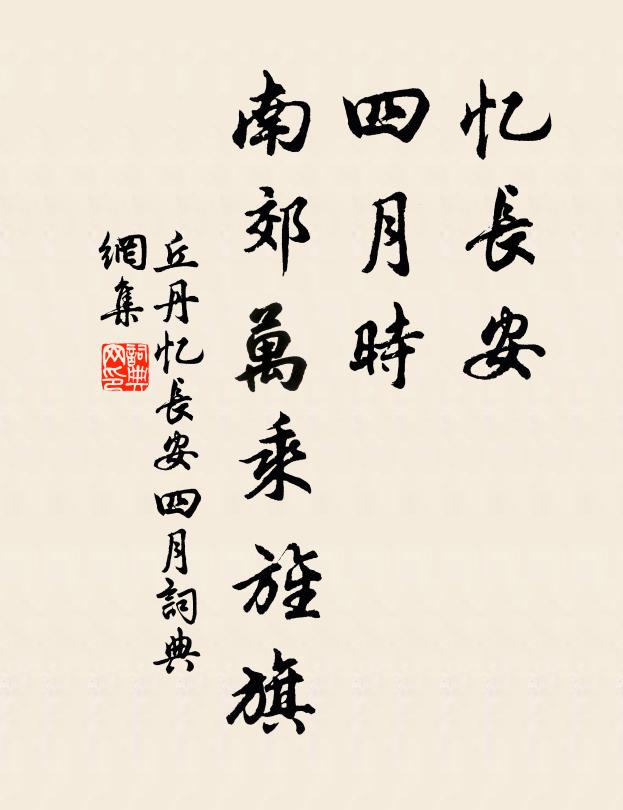 忆長安
四月時
南郊萬乘旌旗
丘丹忆長安四月詞典
網集
詞典
网印